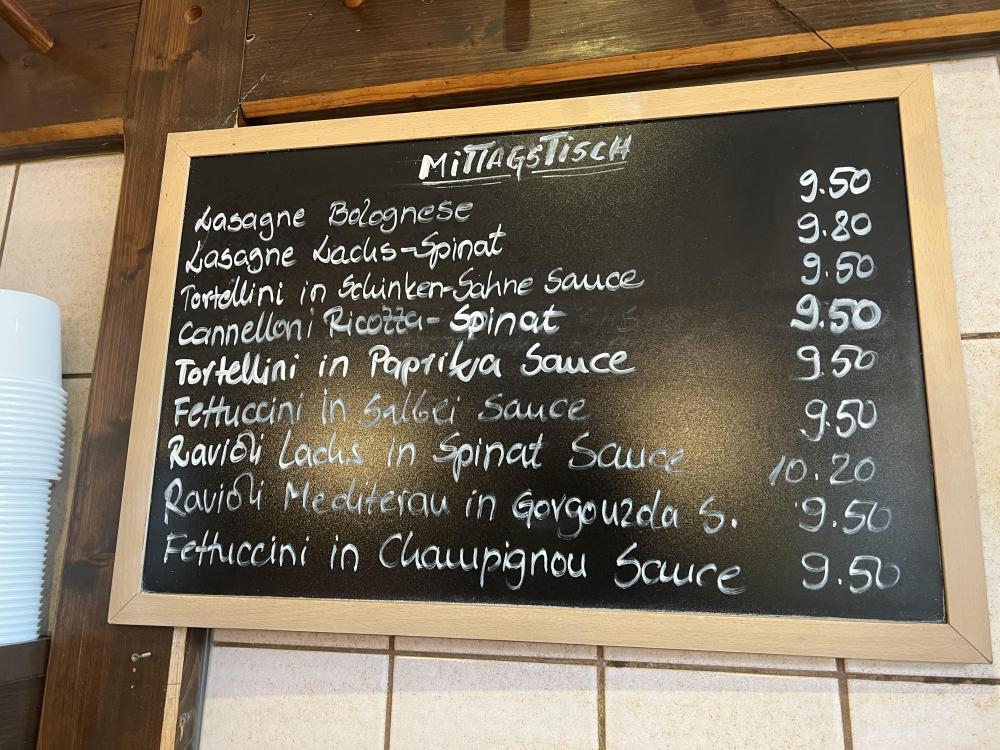 MITTAGSTISCH
Lasagne Bolognese 9.50
Lasagne Lachs-Spinat 9.80
Tortellini in Schinken-Sahne Sauce 9.50
Cannelloni Ricotta-Spinat 9.50
Tortellini in Paprika Sauce 9.50
Fettuccini in Salbei Sauce 9.50
Ravioli Lachs in Spinat Sauce 10.20
Ravioli Mediteran in Gorgonzola S. 9.50
Fettuccini in Champignon Sauce 9.50